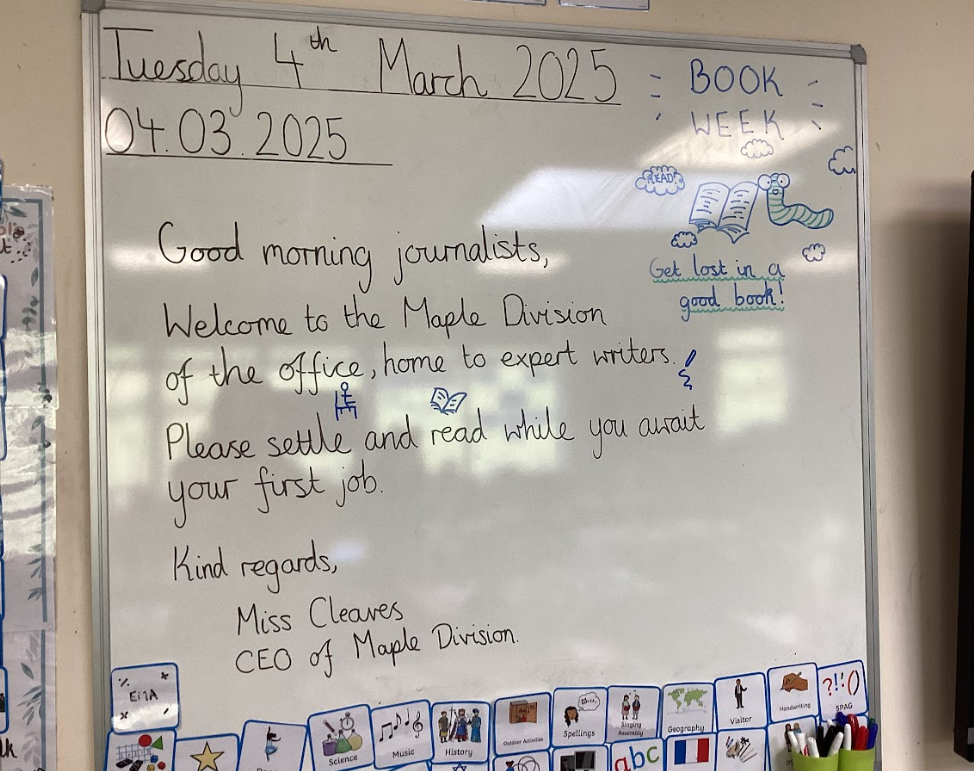 Tuesday 4th March 2025
04.03.2025
BOOK
WEEK
READ!
Get lost in a
good book!
Good morning journalists,
Welcome to the Maple Division
of the office, home to expert writers.
Please settle and read while you await
your first job.
Kind regards,
Miss Cleaves
CEO of Maple Division.
EMA
Science
Music
History
Outdoor Activities
Spellings
Singing Assembly
Geography
Visitor
Handwriting
?!:()
SPAG
abc